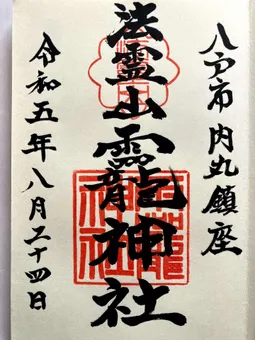 八戸市内丸鎮座
法霊山龗神社
令和五年八月二十四日